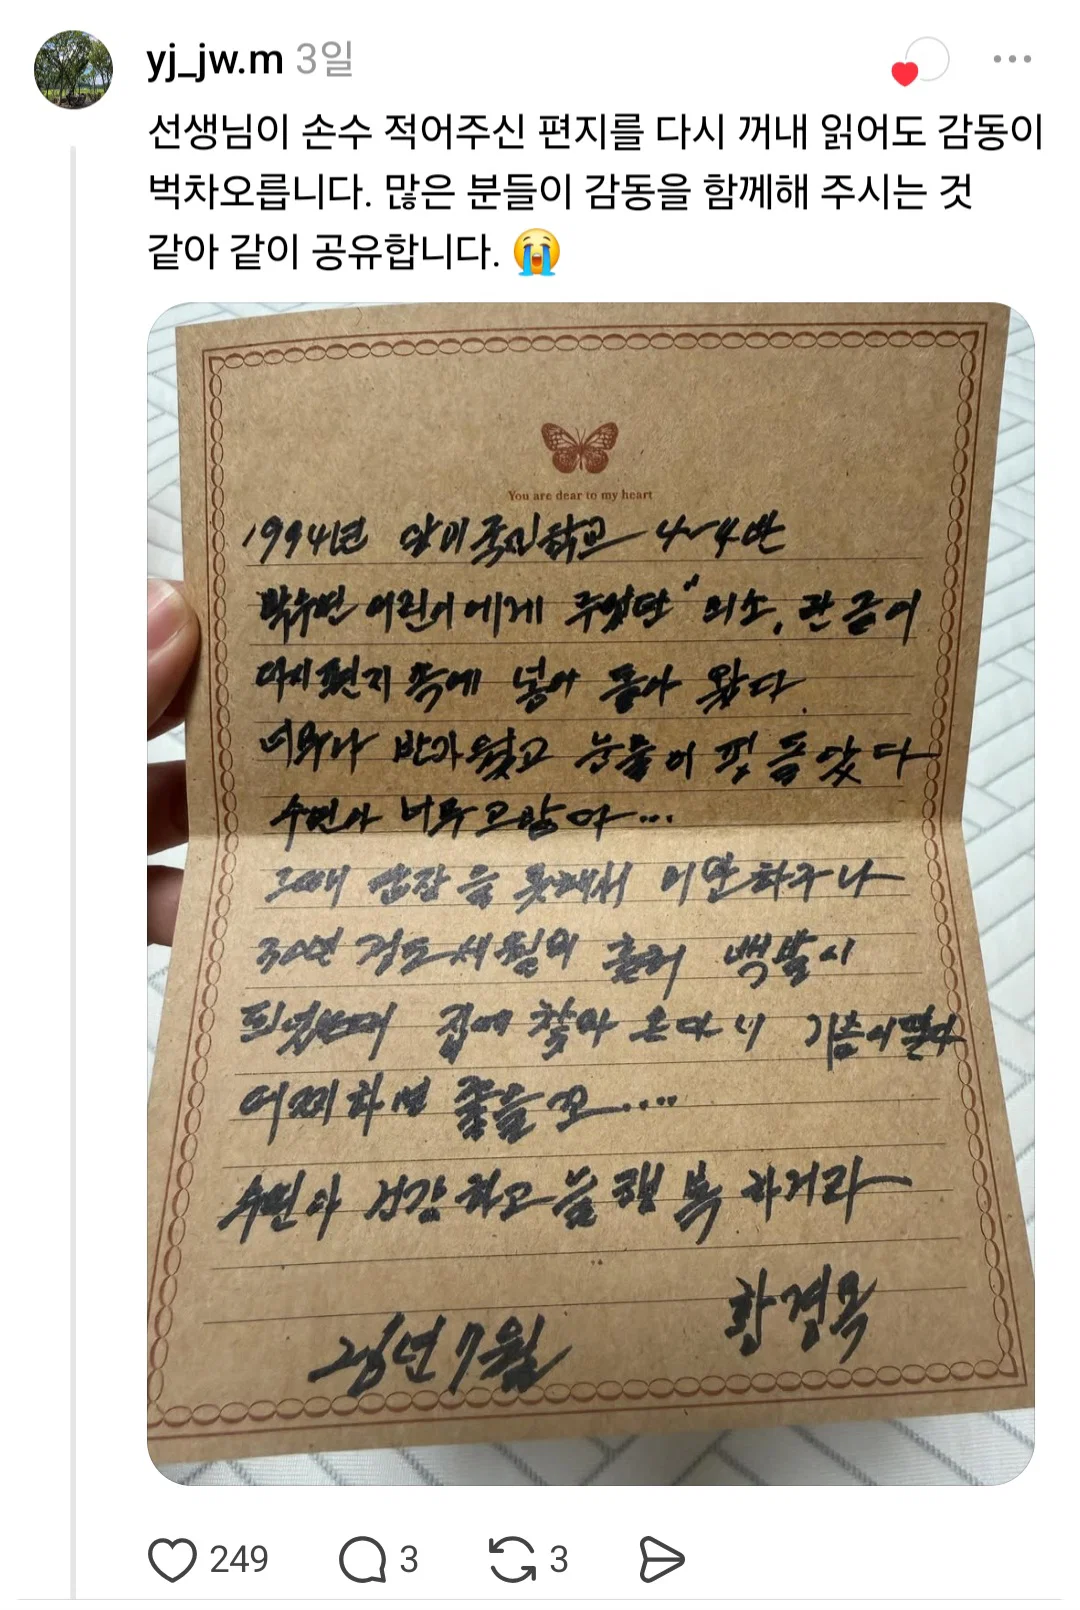 yj_jw.m 3일
선생님이 손수 적어주신 편지를 다시 꺼내 읽어도 감동이
벅차오릅니다. 많은 분들이 감동을 함께해 주시는 것
같아 같이 공유합니다. 😭
You are dear to my heart
1994년 국민학교 4-4반
어린이에게 주었던 "미소, 관급이
다시 편지 속에 넣어 돌아 왔다.
너무나 반가웠고 눈물이 핑 돌았다
수면아 너무 고맙다...
그때 답장을 못해서 미안하구나
30년 정도 세월이 흘러 백발이
되었는데 집에 찾아 온다니 기쁨이랄까
어찌하면 좋을꼬....
수면아 건강하고 늘 행복 하거라
황경목
26년 7월
249 3 3